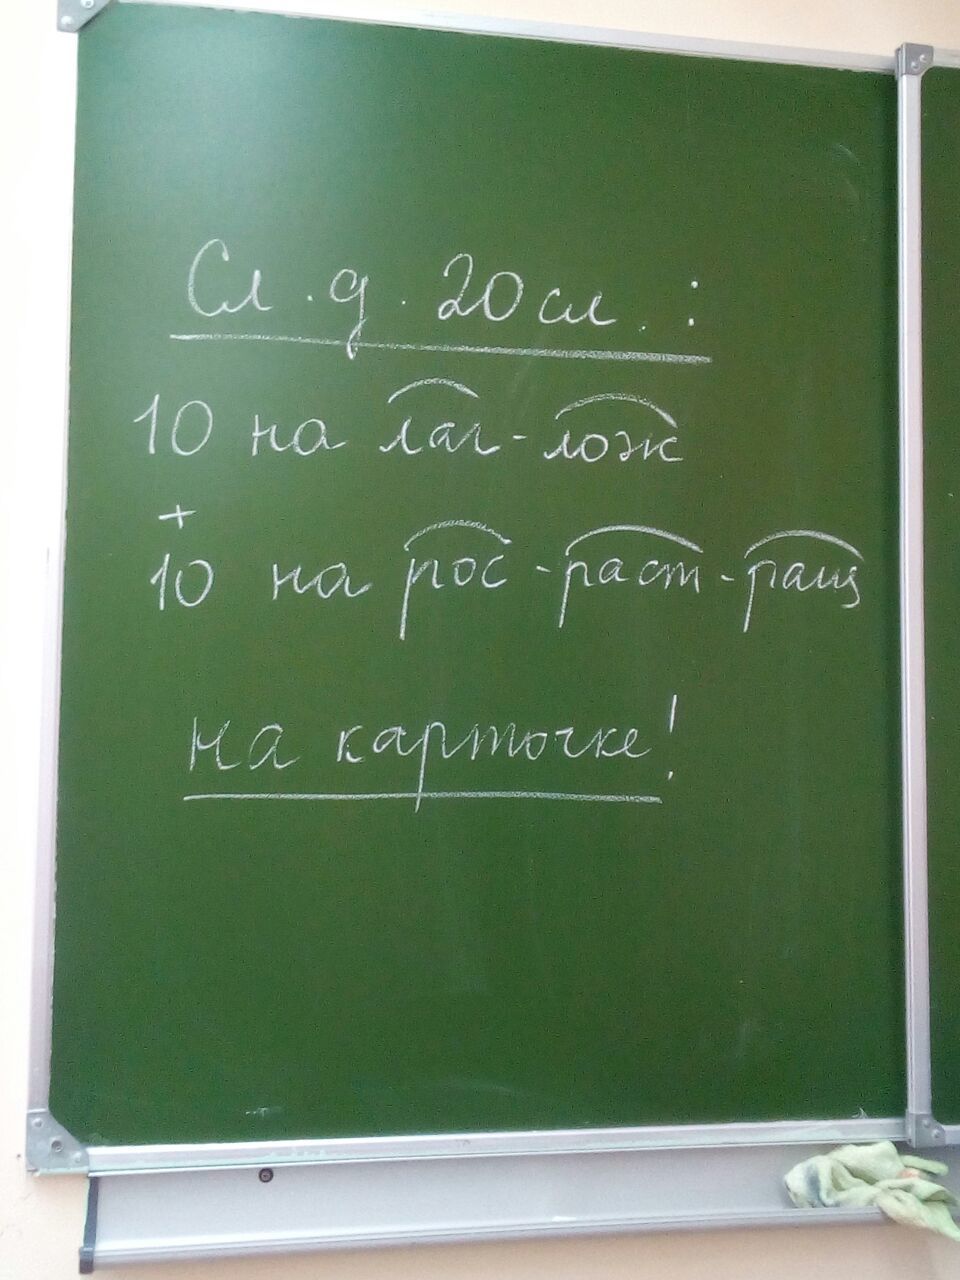 Сл. д. 20 сл. :
10 на лаг - лож
+
10 на рос - раст - ращ
на карточке!